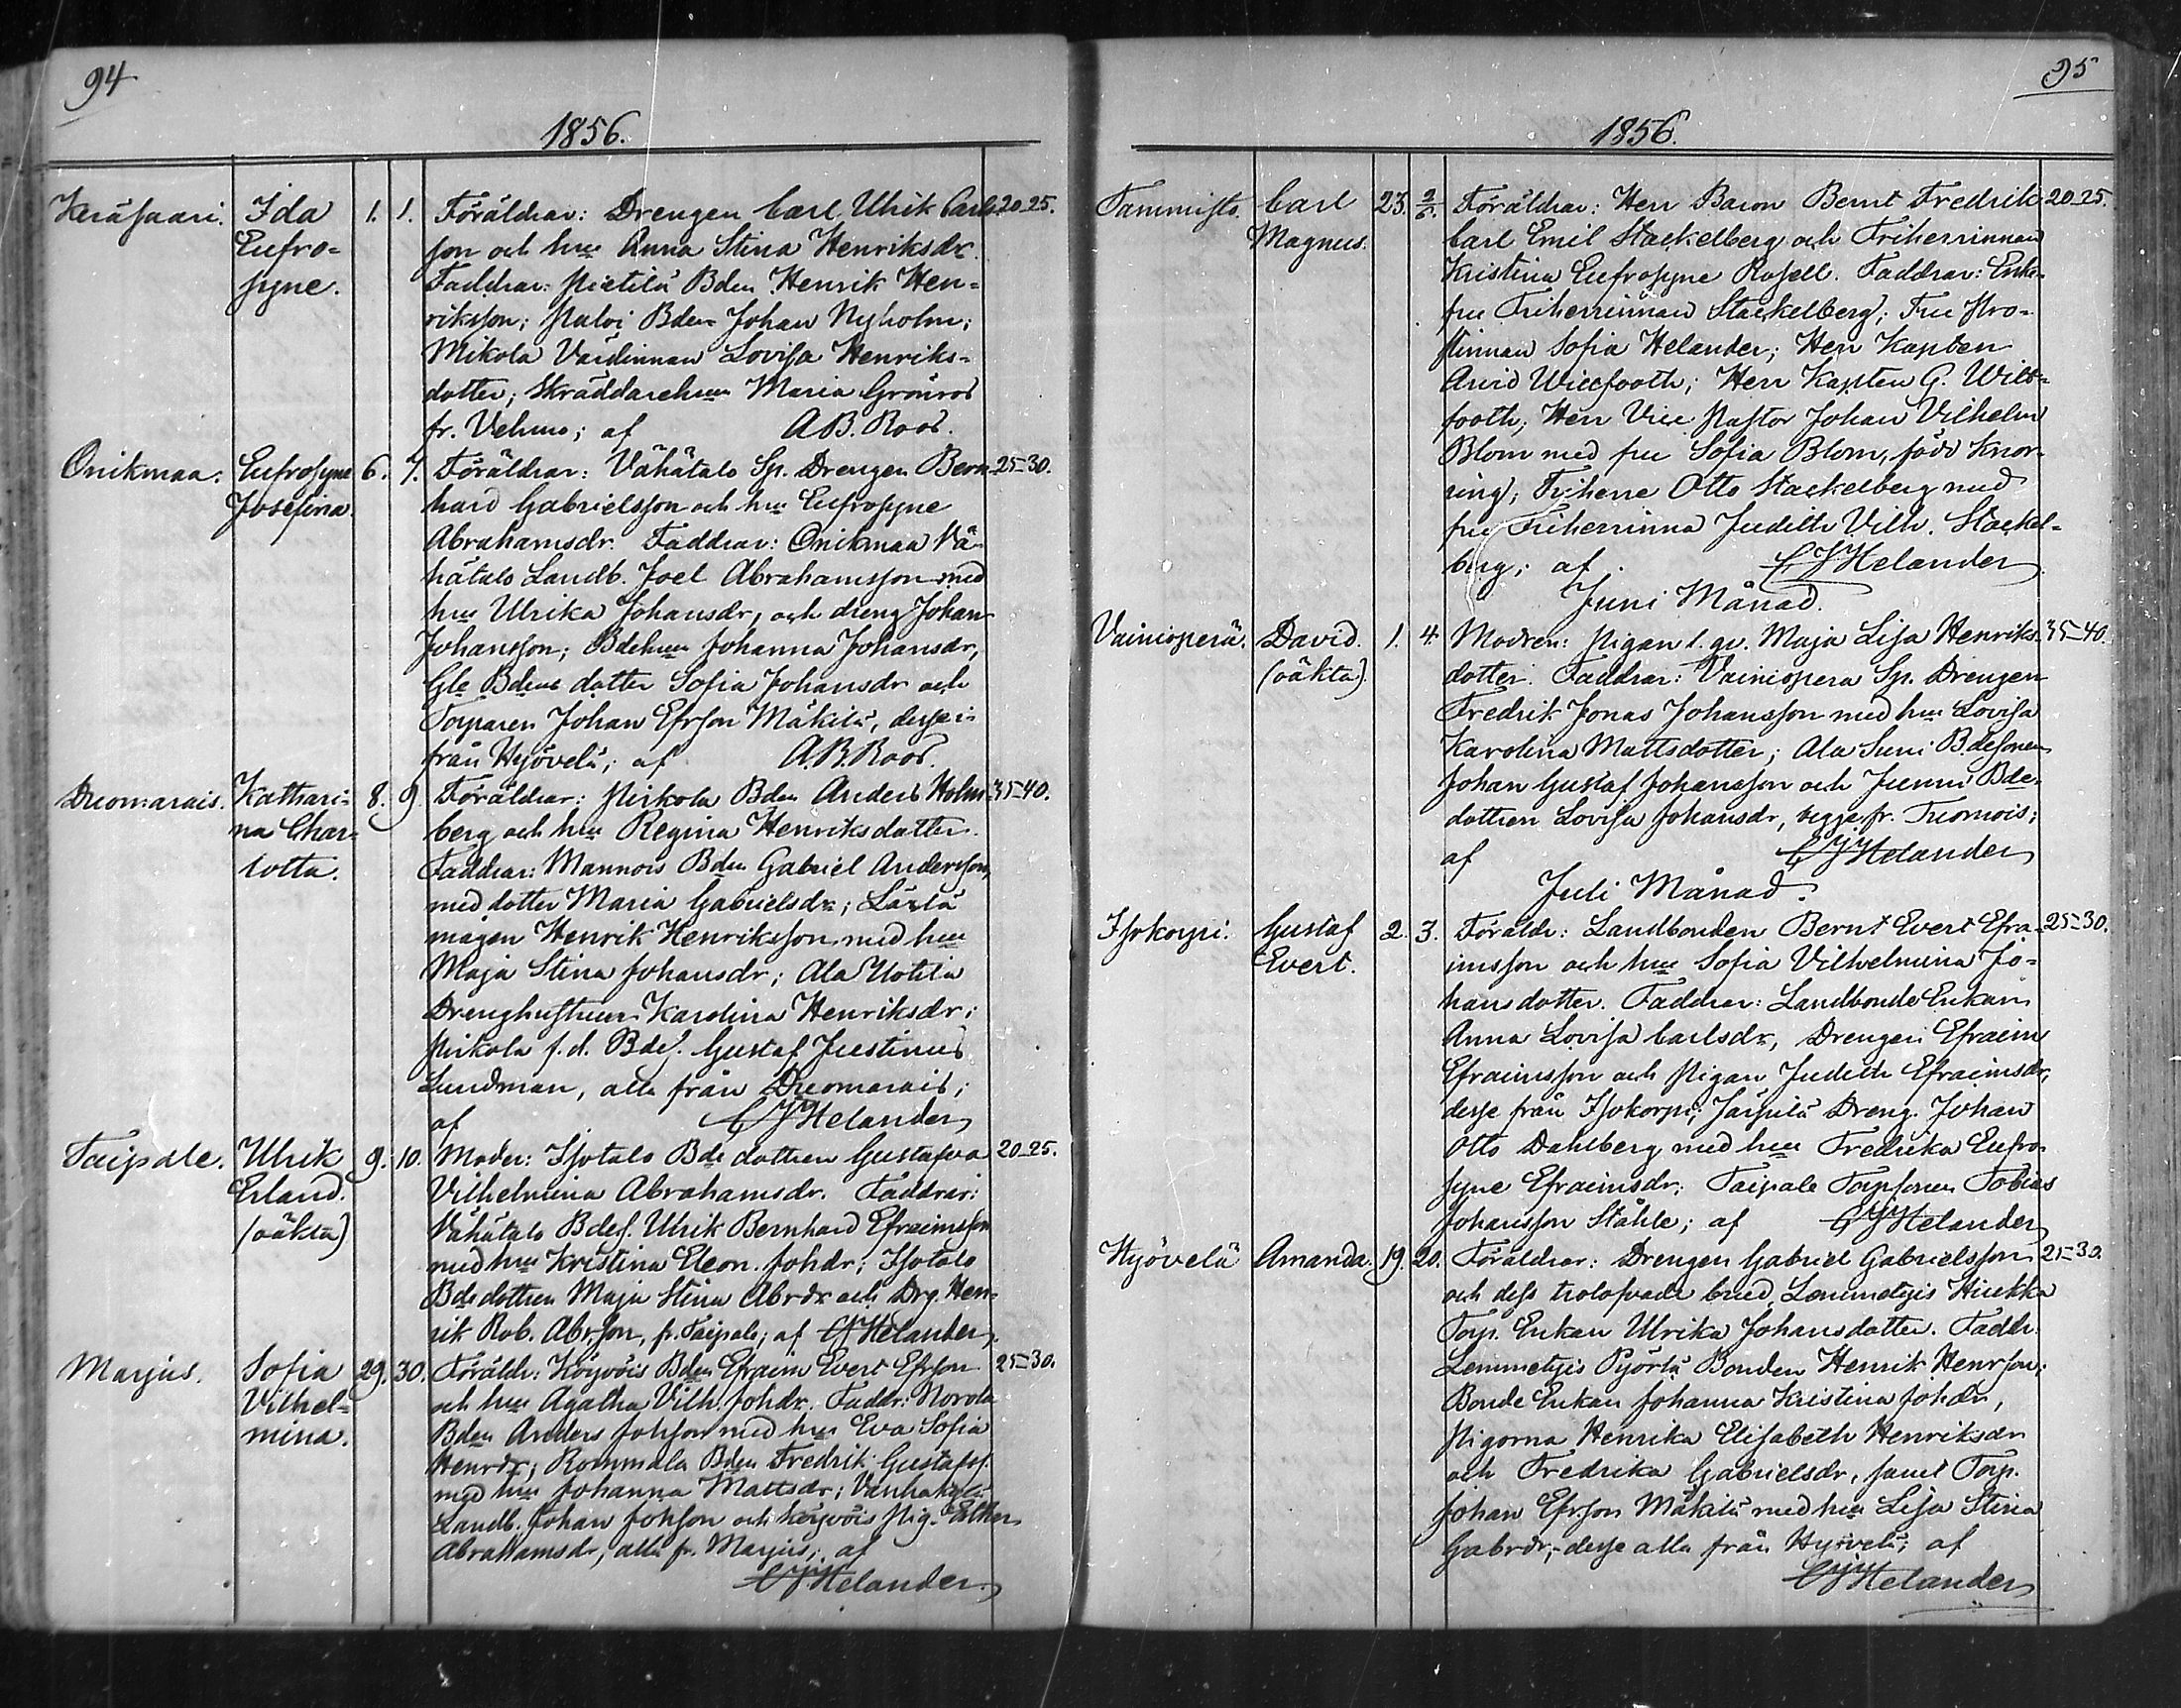 94
1856.
Keräsaari. Ida 1. 1. Föräldrar: Drengen Carl Ulrik Carls- 20-25.
Eufro- son och hu Anna Stina Henriksdr.
syne. Faddrar: Pietilä Bden Henrik Hen-
riksson; Palvi Bden Johan Nyholm;
Mikola Värdinnan Lovisa Henriks-
dotter; Skräddarehun Maria Grönros
fr. Vehmo; af A.B. Roos.
Onikmaa. Eufrosyne 6. 7. Föräldrar: Vähätalo Sp. Drengen Bern- 25-30.
Josefina. hard Gabrielsson och hu Eufrosyne
Abrahamsdr. Faddrar: Onikmaa Vä-
hätalo Landb. Joel Abrahamsson med
hu Ulrika Johansdr, och dreng Johan
Johansson; Bdehun Johanna Johansdr,
Gle Bdens dotter Sofia Johansdr och
Torparen Johan Efrson Mäkilä, desse i-
från Hyövelä; af A.B. Roos.
Duomarais. Kathari- 8. 9. Föräldrar: Pirkola Bden Anders Holm- 35-40.
na Char- berg och hu Regina Henriksdotter.
lotta. Faddrar: Mannois Bden Gabriel Andersson,
med dotter Maria Gabrielsdr; Lärlä
mågen Henrik Henriksson med hu
Maja Stina Johansdr; Ala Uotila
Drenghustrun Karolina Henriksdr;
Pirkola f.d. Bdes. Gustaf Justinus
Lundman, alla från Duomarais;
af CJHelander
Taipale. Ulrik 9. 10. Moder: Isotalo Bde dottren Gustafva 20-25.
Erland. Vilhelmina Abrahamsdr. Faddrar:
(oäkta) Vähätalo Bdes. Ulrik Bernhard Efraimsson
med hu Kristina Eleon. Johdr; Isotalo
Bde dottren Maja Stina Abrdr och Drg. Hen-
rik Rob. Abrson, fr. Taipale; af CJHelander.
Marjus. Sofia 29. 30. Föräldr: Köyvöis Bden Efraim Evert Efrson 25-30.
Vilhel- och hu Agatha Vilh. Johdr. Faddr: Norola
mina. Bden Anders Johson med hu Eva Sofia
Henrdr; Rommala Bden Fredrik Gustafss.
med hu Johanna Mattsdr; Vanhakylä
Landb. Johan Johson och Köyvöis Pig. Esther
Abrahamsdr, alla fr. Marjus; af
CJHelander.
95
1856.
Tammisto. Carl 23. 2/6. Föräldrar: Herr Baron Bernt Fredrik 20-25.
Magnus. Carl Emil Stackelberg och Friherrinnan
Kristina Eufrosyne Rosell. Faddrar: Enke-
fru Friherrinnan Stackelberg; Fru Pro-
stinnan Sofia Helander; Herr Kapten
Arvid Willfooth; Herr Kapten G. Will-
footh; Herr Vice Pastor Johan Vilhelm
Blom med fru Sofia Blom, född Knor-
ring; Friherre Otto Stackelberg med
fru Friherrinna Judith Vilh. Stackel-
berg; af CJHelander
Juni Månad.
Vainioperä. David. 1. 4. Modren: Pigan l. qv. Maja Lisa Henriks- 35-40.
(oäkta). dotter. Faddrar: Vainiopera Sp. Drengen
Fredrik Jonas Johansson med hu Lovisa
Karolina Mattsdotter; Ala Suni Bdesonen
Johan Gustaf Johansson och Junni Bde-
dottren Lovisa Johansdr, begge fr. Tuomois;
af CJHelander
Juli Månad.
Isokorpi. Gustaf 2. 3. Föräldr: Landbonden Bernt Evert Efra- 25-30.
Evert. imsson och hu Sofia Vilhelmina Jo-
hansdotter. Faddrar: Landbonde Enkan
Anna Lovisa Carlsdr, Drengen Efraim
Efraimsson och Pigan Judith Efraimsdr,
desse från Isokorpi; Jäspilä Dreng. Johan
Otto Dahlberg med hu Fredrika Eufro-
syne Efraimsdr; Taipale Torpsonen Tobias
Johansson Ståhle; af CJHelander
Hyövelä Amanda. 19. 20. Föräldrar: Drengen Gabriel Gabrielsson 25-30.
och dess trolofvade brud, Lemmetyis Hiukka
Torp. Enkan Ulrika Johansdotter. Faddr.
Lemmetyis Pyörlä Bonden Henrik Henrson;
Bonde Enkan Johanna Kristina Johdr,
Pigorna Henrika Elisabeth Henriksdr
och Fredrika Gabrielsdr, samt Torp.
Johan Efrson Mäkilä med hu Lisa Stina
Gabrdr; desse alla från Hyövelä; af
CJHelander